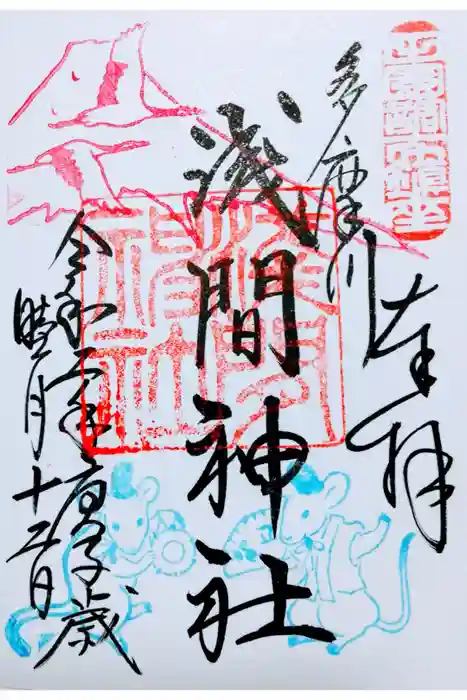 奉拝
多摩川
浅間神社
令和二年庚子歳
睦月十 日